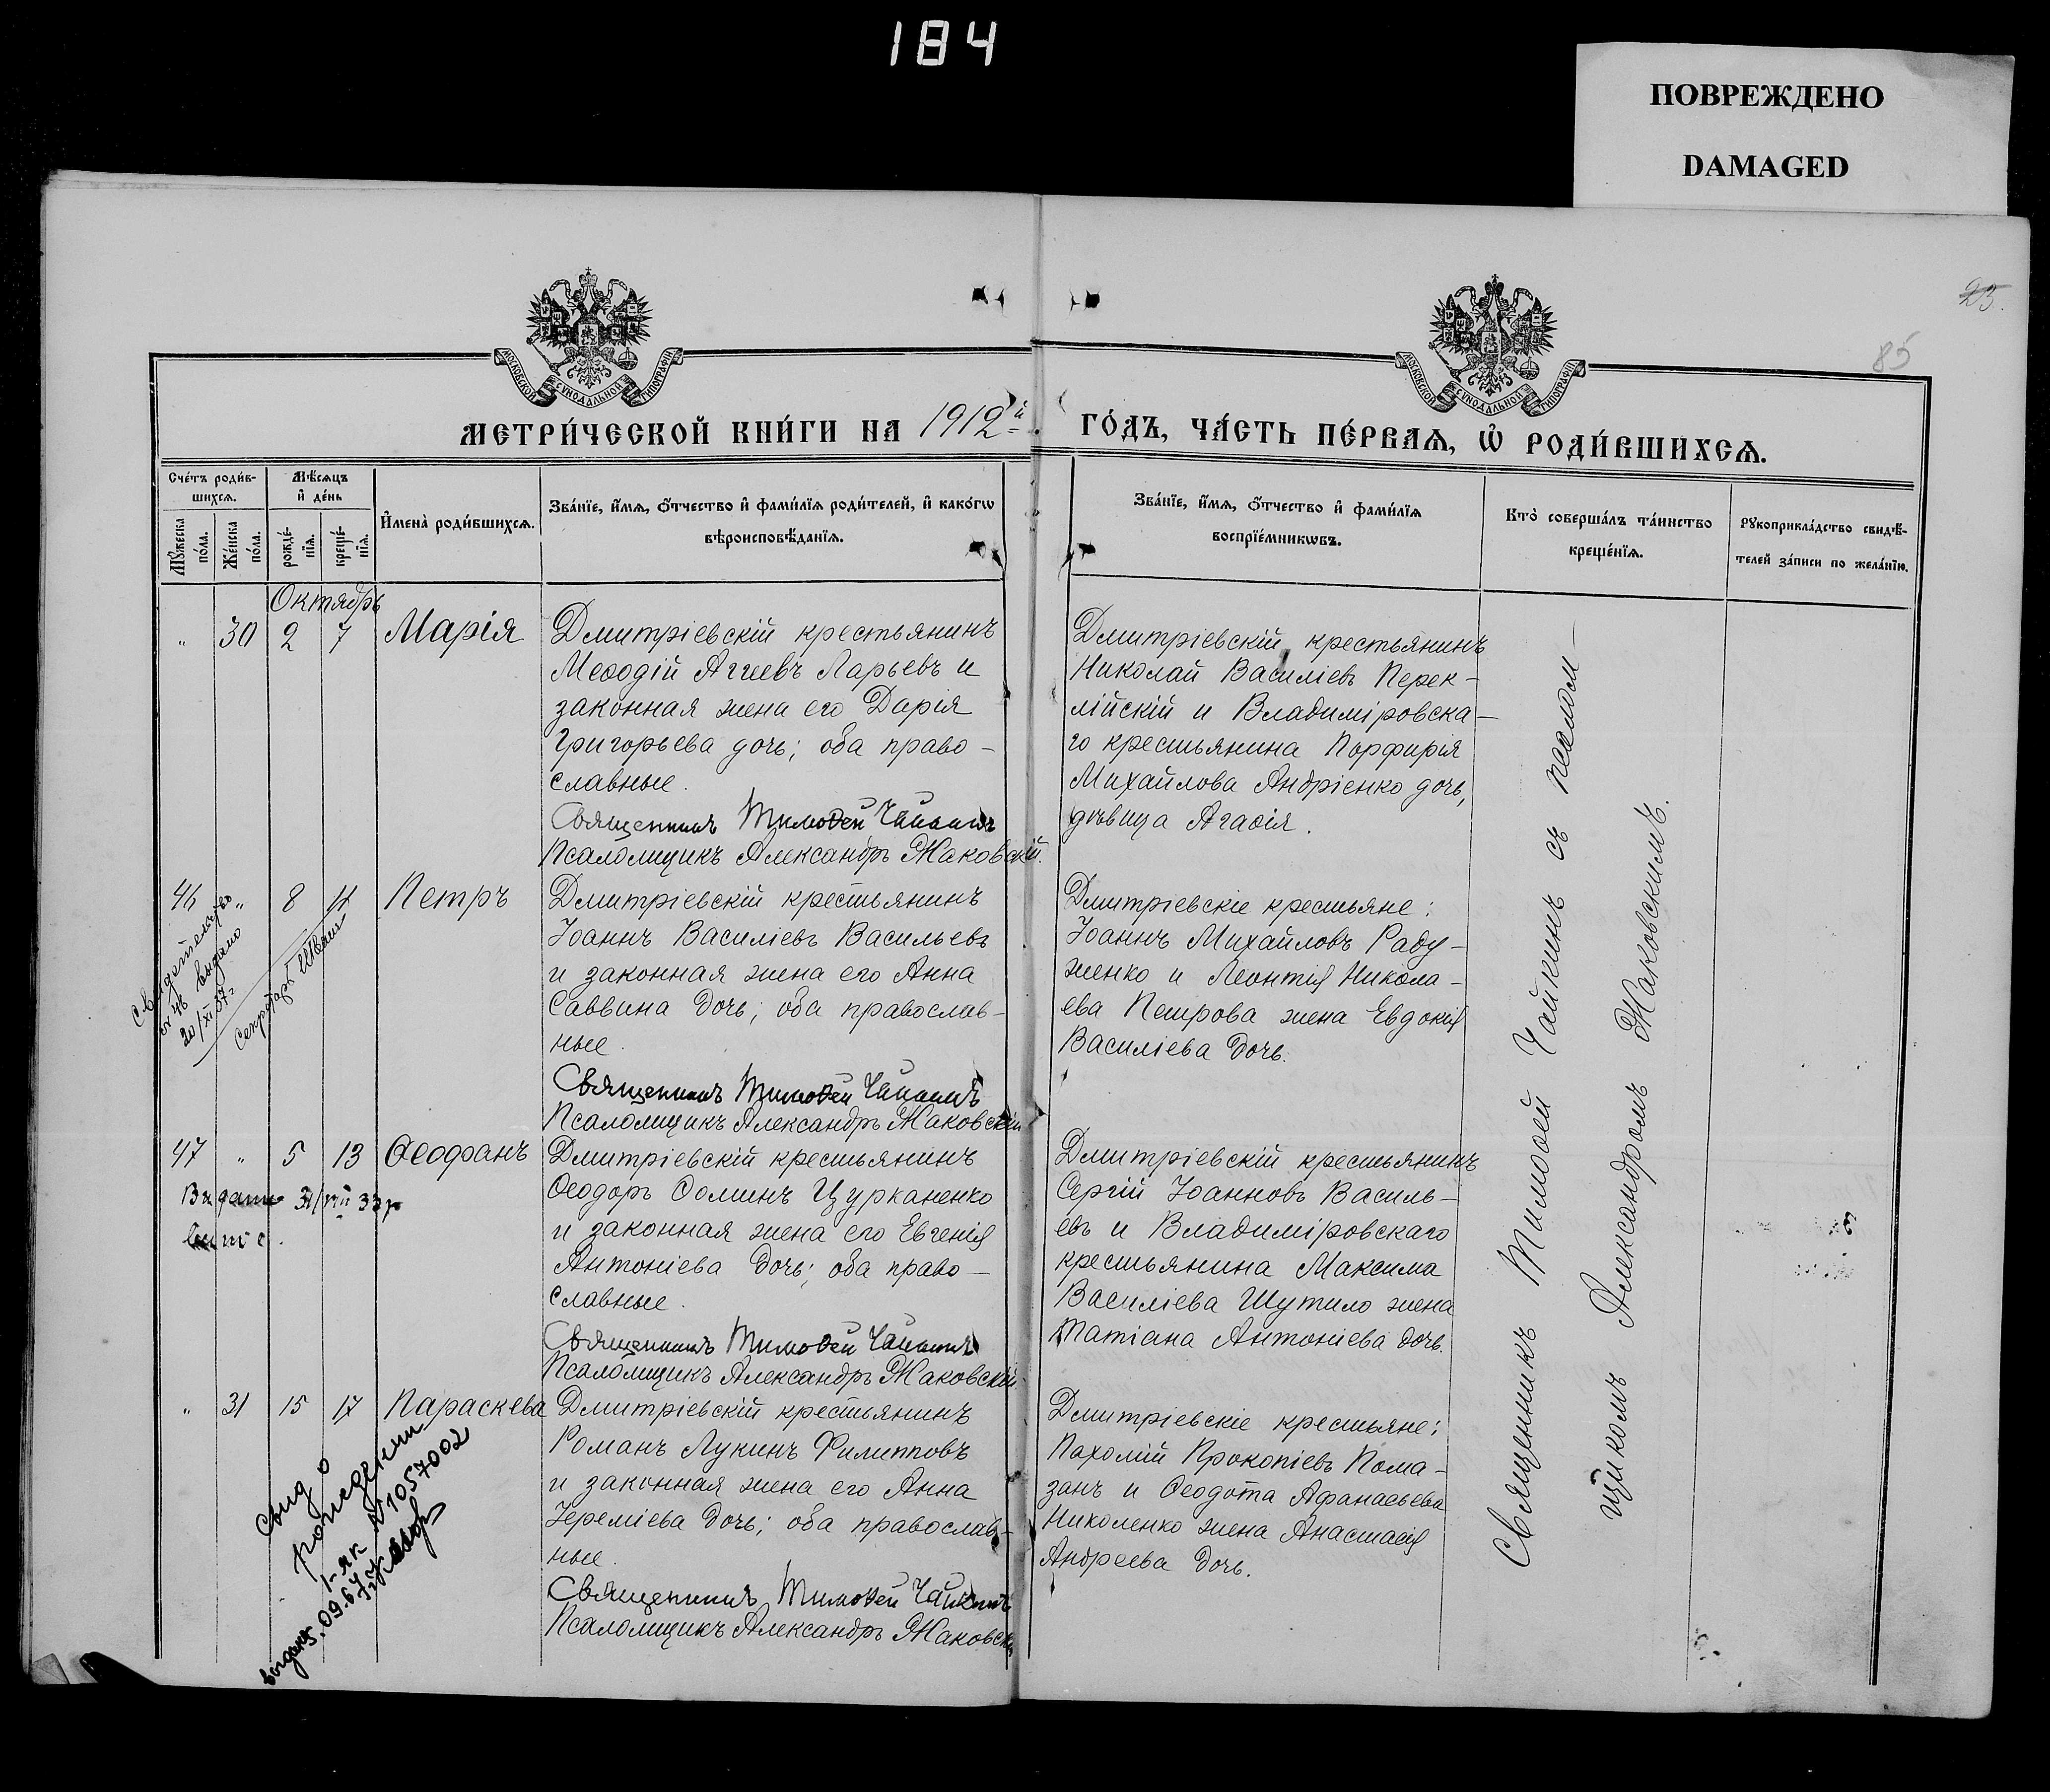 184
ПОВРЕЖДЕНО
DAMAGED
23.
85
МОСКОВСКОЙ СУНОДАЛЬНОЙ ТИПОГРАФІИ
МОСКОВСКОЙ СУНОДАЛЬНОЙ ТИПОГРАФІИ
МЕТРИ́ЧЕСКОЙ КНИ́ГИ НА 1912й
ГО́ДЪ, ЧА́СТЬ ПЕ́РВАѦ, Ѡ҆ РОДИ́ВШИХСѦ.
Сче́тъ роди́в-
шихсѧ.
Мѣ́сѧцъ
и҆ де́нь
Мꙋ́жеска
по́ла.
Же́нска
по́ла.
рожде́-
нїѧ.
креще́-
нїѧ.
И҆мена̀ роди́вшихсѧ.
Зва́нїе, и҆́мѧ, ѻ҆́тчество и҆ фами́лїѧ роди́телей, и҆ како́гѡ
вѣроисповѣ́данїѧ.
Зва́нїе, и҆́мѧ, ѻ҆́тчество и҆ фами́лїѧ
воспрїе́мникѡвъ.
Кто̀ соверша́лъ та́инство
креще́нїѧ.
Рꙋкоприкла́дство свидѣ́-
телей за́писи по жела́нїю.
Октябрь
„ 30 2 7 Марія
Дмитріевскій крестьянинъ
Меѳодій Аггеевъ Ларьевъ и
законная жена его Дарія
Григорьева дочь; оба право-
славные.
Священникъ Тимоѳей Чайкинъ
Псаломщикъ Александръ Жаковскій.
Дмитріевскій крестьянинъ
Николай Василіевъ Перек-
лійскій и Владиміровска-
го крестьянина Порфирія
Михайлова Андріенко дочь,
дѣвица Агаѳія.
46 „ 8 11 Петръ
Свидетельство
выдано
20/XI 37г
Секретарь
Дмитріевскій крестьянинъ
Іоаннъ Василіевъ Васильевъ
и законная жена его Анна
Саввина дочь; оба православ-
ные.
Священникъ Тимоѳей Чайкинъ
Псаломщикъ Александръ Жаковскій
Дмитріевскіе крестьяне:
Іоаннъ Михайловъ Раду-
женко и Леонтія Никола-
ева Петрова жена Евдокія
Василіева дочь.
47 „ 5 13 Ѳеофанъ
Дмитріевскій крестьянинъ
Ѳеодоръ Ѳоминъ Цурканенко
и законная жена его Евгенія
Антоніева дочь; оба право-
славные.
Священникъ Тимоѳей Чайкинъ
Псаломщикъ Александръ Жаковскій
Дмитріевскій крестьянинъ
Сергій Іоанновъ Василь-
евъ и Владиміровскаго
крестьянина Максима
Василіева Шутило жена
Татіана Антоніева дочь.
„ 31 15 17 Параскева
Свид о
рождении
I-ЯК №1057002
выдано
Дмитріевскій крестьянинъ
Романъ Лукинъ Филипповъ
и законная жена его Анна
Іереміева дочь; оба православ-
ные.
Священникъ Тимоѳей Чайкинъ
Псаломщикъ Александръ Жаковскі
Дмитріевскіе крестьяне:
Пахомій Прокопіевъ Пома-
занъ и Ѳеодота Афанасьева
Николенко жена Анастасія
Андреева дочь.
Священникъ Тимоѳей Чайкинъ съ псалом-
щикомъ Александромъ Жаковскимъ.